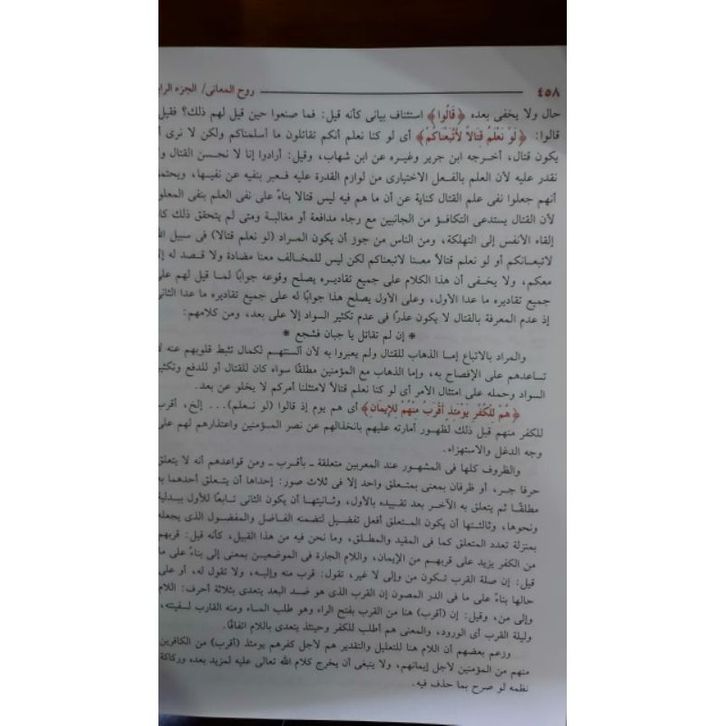 ٤٥٨ روح المعانى/ الجزء الرابع
حال ولا يخفى بعده ﴿قَالُوا﴾ استئناف بيانى كأنه قيل: فما صنعوا حين قيل لهم ذلك؟ فقيل
قالوا: ﴿لَوْ نَعْلَمُ قِتَالاً لاَّتَّبَعْنَاكُمْ﴾ أى لو كنا نعلم أنكم تقاتلون ما أسلمناكم ولكن لا نرى أن
يكون قتال، أخرجه ابن جرير وغيره عن ابن شهاب، وقيل: أرادوا إنا لا نحسن القتال ولا
نقدر عليه لأن العلم بالفعل الاختيارى من لوازم القدرة عليه فعبر بنفيه عن نفيها، ويحتمل
أنهم جعلوا نفى علم القتال كناية عن أن ما هم فيه ليس قتالا بناءً على نفى العلم بنفى المعلوم
لأن القتال يستدعى التكافؤ من الجانبين مع رجاء مدافعة أو مغالبة ومتى لم يتحقق ذلك كان
إلقاء الأنفس إلى التهلكة، ومن الناس من جوز أن يكون المراد (لو نعلم قتالا) فى سبيل الله
لاتبعناكم أو لو نعلم قتالاً معنا لاتبعناكم لكن ليس للمخالف معنا مضادة ولا قصد له إلا
معكم، ولا يخفى أن هذا الكلام على جميع تقاديره يصلح وقوعه جوابًا لما قيل لهم على
جميع تقاديره ما عدا الأول، وعلى الأول يصلح هذا جوابًا له على جميع تقاديره ما عدا الثانى
إذ عدم المعرفة بالقتال لا يكون عذرًا فى عدم تكثير السواد إلا على بعد، ومن كلامهم:
* إن لم تقاتل يا جبان فشجع *
والمراد بالاتباع إما الذهاب للقتال ولم يعبروا به لأن ألسنتهم لكمال تثبط قلوبهم عنه لا
تساعدهم على الإفصاح به، وإما الذهاب مع المؤمنين مطلقًا سواء كان للقتال أو للدفع وتكثير
السواد وحمله على امتثال الأمر أى لو كنا نعلم قتالاً لامتثلنا أمركم لا يخلو عن بعد.
﴿هُمْ لِلْكُفْرِ يَوْمَئِذٍ أَقْرَبُ مِنْهُمْ لِلإِيمَانِ﴾ أى هم يوم إذ قالوا (لو نعلم)... إلخ، أقرب
للكفر منهم قبل ذلك لظهور أمارته عليهم بانخذالهم عن نصر المؤمنين واعتذارهم لهم على
وجه الدغل والاستهزاء.
والظروف كلها فى المشهور عند المعربين متعلقة ـ بأقرب ـ ومن قواعدهم أنه لا يتعلق
حرفا جر، أو ظرفان بمعنى بمتعلق واحد إلا فى ثلاث صور: إحداها أن يتعلق أحدهما به
مطلقًا ثم يتعلق به الآخر بعد تقييده بالأول، وثانيتها أن يكون الثانى تابعًا للأول ببدلية
ونحوها، وثالثتها أن يكون المتعلق أفعل تفضيل لتضمنه الفاضل والمفضول الذى يجعله
بمنزلة تعدد المتعلق كما فى المقيد والمطلق، وما نحن فيه من هذا القبيل، كأنه قيل: قربهم
من الكفر يزيد على قربهم من الإيمان، واللام الجارة فى الموضعين بمعنى إلى بناءً على ما
قيل: إن صلة القرب تكون من وإلى لا غير، تقول: قرب منه وإليه، ولا تقول له، أو على
حالها بناءً على ما فى الدر المصون إن القرب الذى هو ضد البعد يتعدى بثلاثة أحرف: اللام
وإلى من، وقيل: إن (أقرب) هنا من القرب بفتح الراء وهو طلب الماء ومنه القارب لسفينته،
وليلة القرب أى الورود، والمعنى هم أطلب للكفر وحينئذ يتعدى باللام اتفاقًا.
وزعم بعضهم أن اللام هنا للتعليل والتقدير هم لأجل كفرهم يومئذ (أقرب) من الكافرين
منهم من المؤمنين لأجل إيمانهم، ولا ينبغى أن يخرج كلام الله تعالى عليه لمزيد بعده وركاكة
نظمه لو صرح بما حذف فيه.